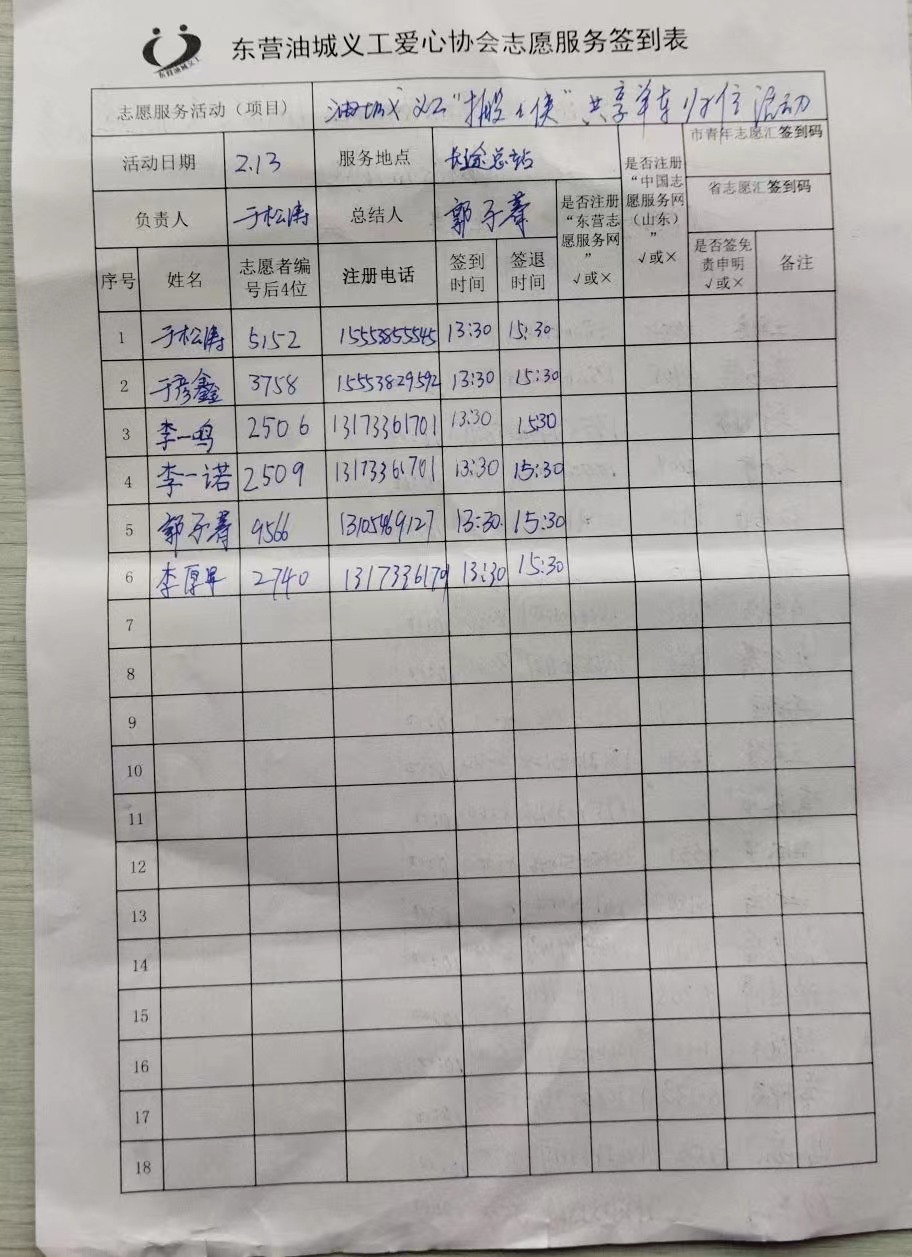 东营油城义工
东营油城义工爱心协会志愿服务签到表
志愿服务活动（项目） 油城义工"搬 侠"共享单车归位活动
活动日期 2.13 服务地点 长途总站
是否注册“中国志愿服务网（山东）” √或×
市青年志愿汇签到码
省志愿汇签到码
负责人 于松涛 总结人 郭子蕃
是否注册“东营志愿服务网” √或×
序号 姓名 志愿者编号后4位 注册电话 签到时间 签退时间 是否签免责申明 √或× 备注
1 于松涛 5152 15553855545 13:30 15:30
2 于彦鑫 3758 15553829592 13:30 15:30
3 李一鸣 2506 13173361701 13:30 1530
4 李一诺 2509 13173361701 13:30 15:30
5 郭子蕃 9566 13105469127 13:30 15:30
6 李厚 2740 13:30 15:30
7
8
9
10
11
12
13
14
15
16
17
18